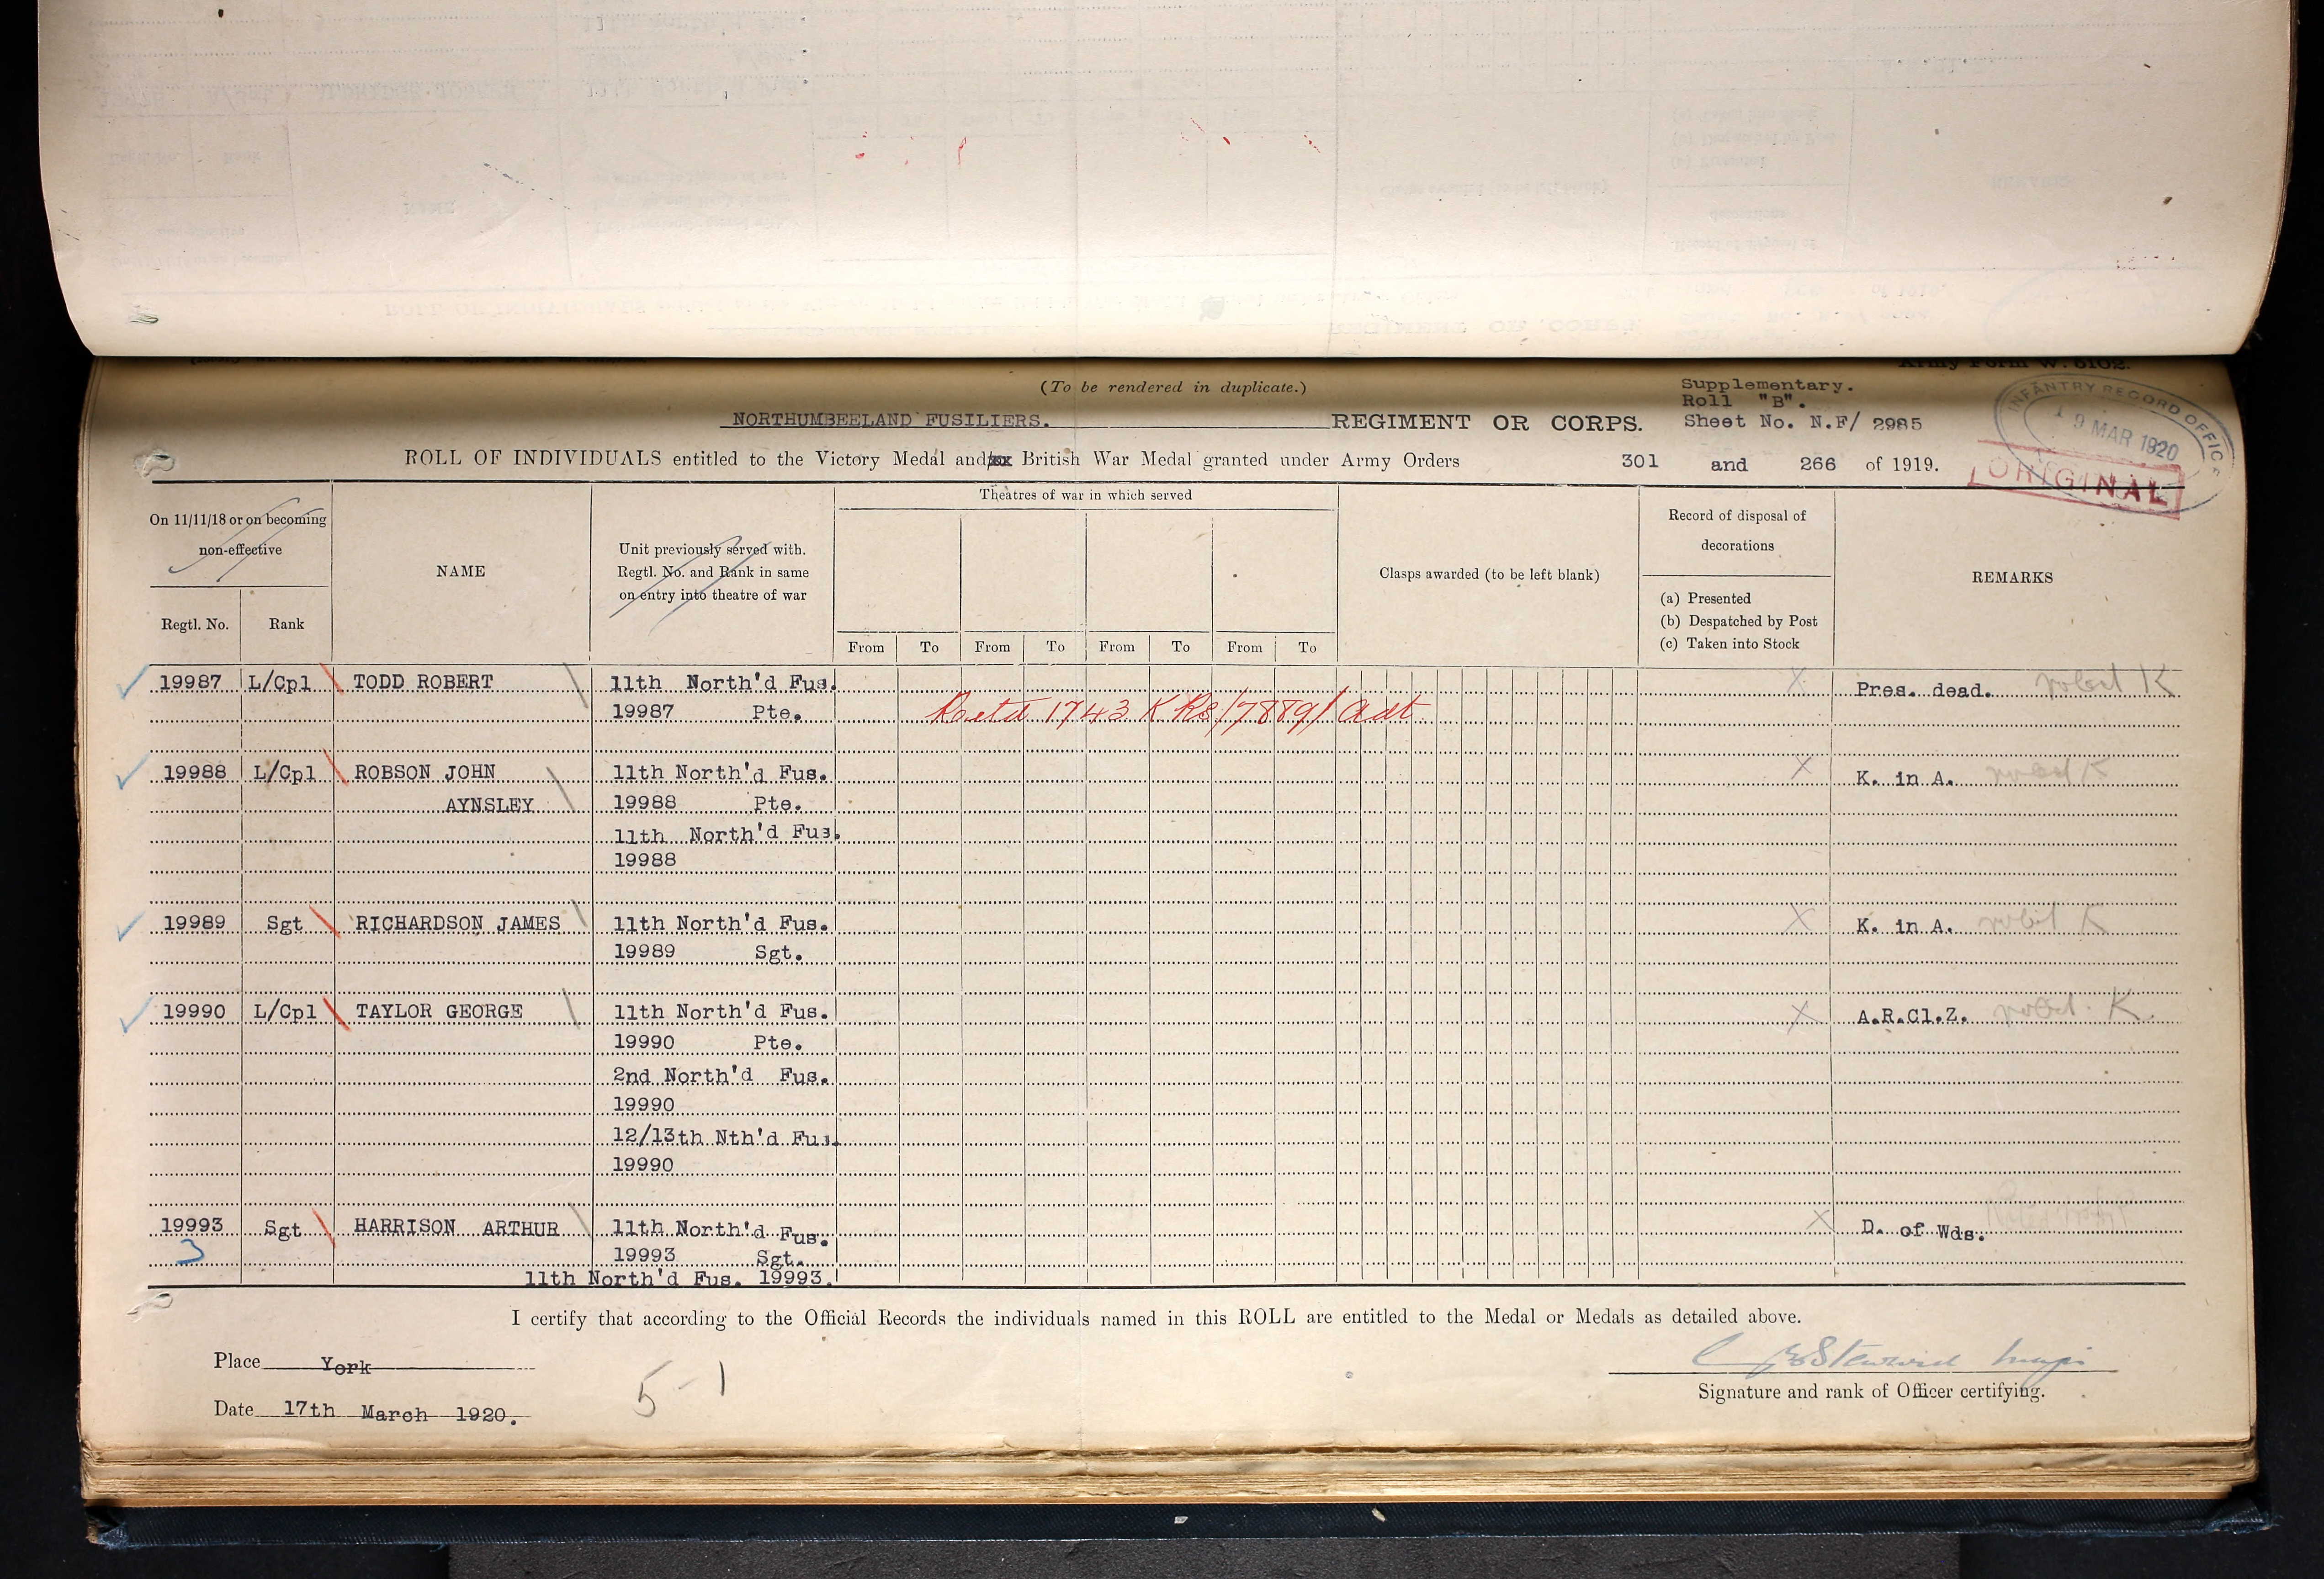 Army Form W. 5102.
(To be rendered in duplicate.)
Supplementary.
Roll "B".
NORTHUMBEELAND FUSILIERS. REGIMENT OR CORPS. Sheet No. N.F/ 2985
INFANTRY RECORD OFFICE
19 MAR 1920
ORIGINAL
ROLL OF INDIVIDUALS entitled to the Victory Medal and/xx British War Medal granted under Army Orders 301 and 266 of 1919.
On 11/11/18 or on becoming non-effective
Regtl. No.
Rank
NAME
Unit previously served with.
Regtl. No. and Rank in same
on entry into theatre of war
Theatres of war in which served
From To From To From To From To
Clasps awarded (to be left blank)
Record of disposal of
decorations
(a) Presented
(b) Despatched by Post
(c) Taken into Stock
REMARKS
19987 L/Cpl TODD ROBERT 11th North'd Fus. X Pres. dead.
19987 Pte. 1743 KRs/7889/Adt
19988 L/Cpl ROBSON JOHN 11th North'd Fus. X K. in A.
AYNSLEY 19988 Pte.
11th North'd Fus.
19988
19989 Sgt RICHARDSON JAMES 11th North'd Fus. X K. in A.
19989 Sgt.
19990 L/Cpl TAYLOR GEORGE 11th North'd Fus. X A.R.Cl.Z.
19990 Pte.
2nd North'd Fus.
19990
12/13th Nth'd Fus.
19990
19993 Sgt HARRISON ARTHUR 11th North'd Fus. X D. of Wds.
3 19993 Sgt.
11th North'd Fus. 19993.
I certify that according to the Official Records the individuals named in this ROLL are entitled to the Medal or Medals as detailed above.
Place York
Date 17th March 1920.
5-1
Signature and rank of Officer certifying.